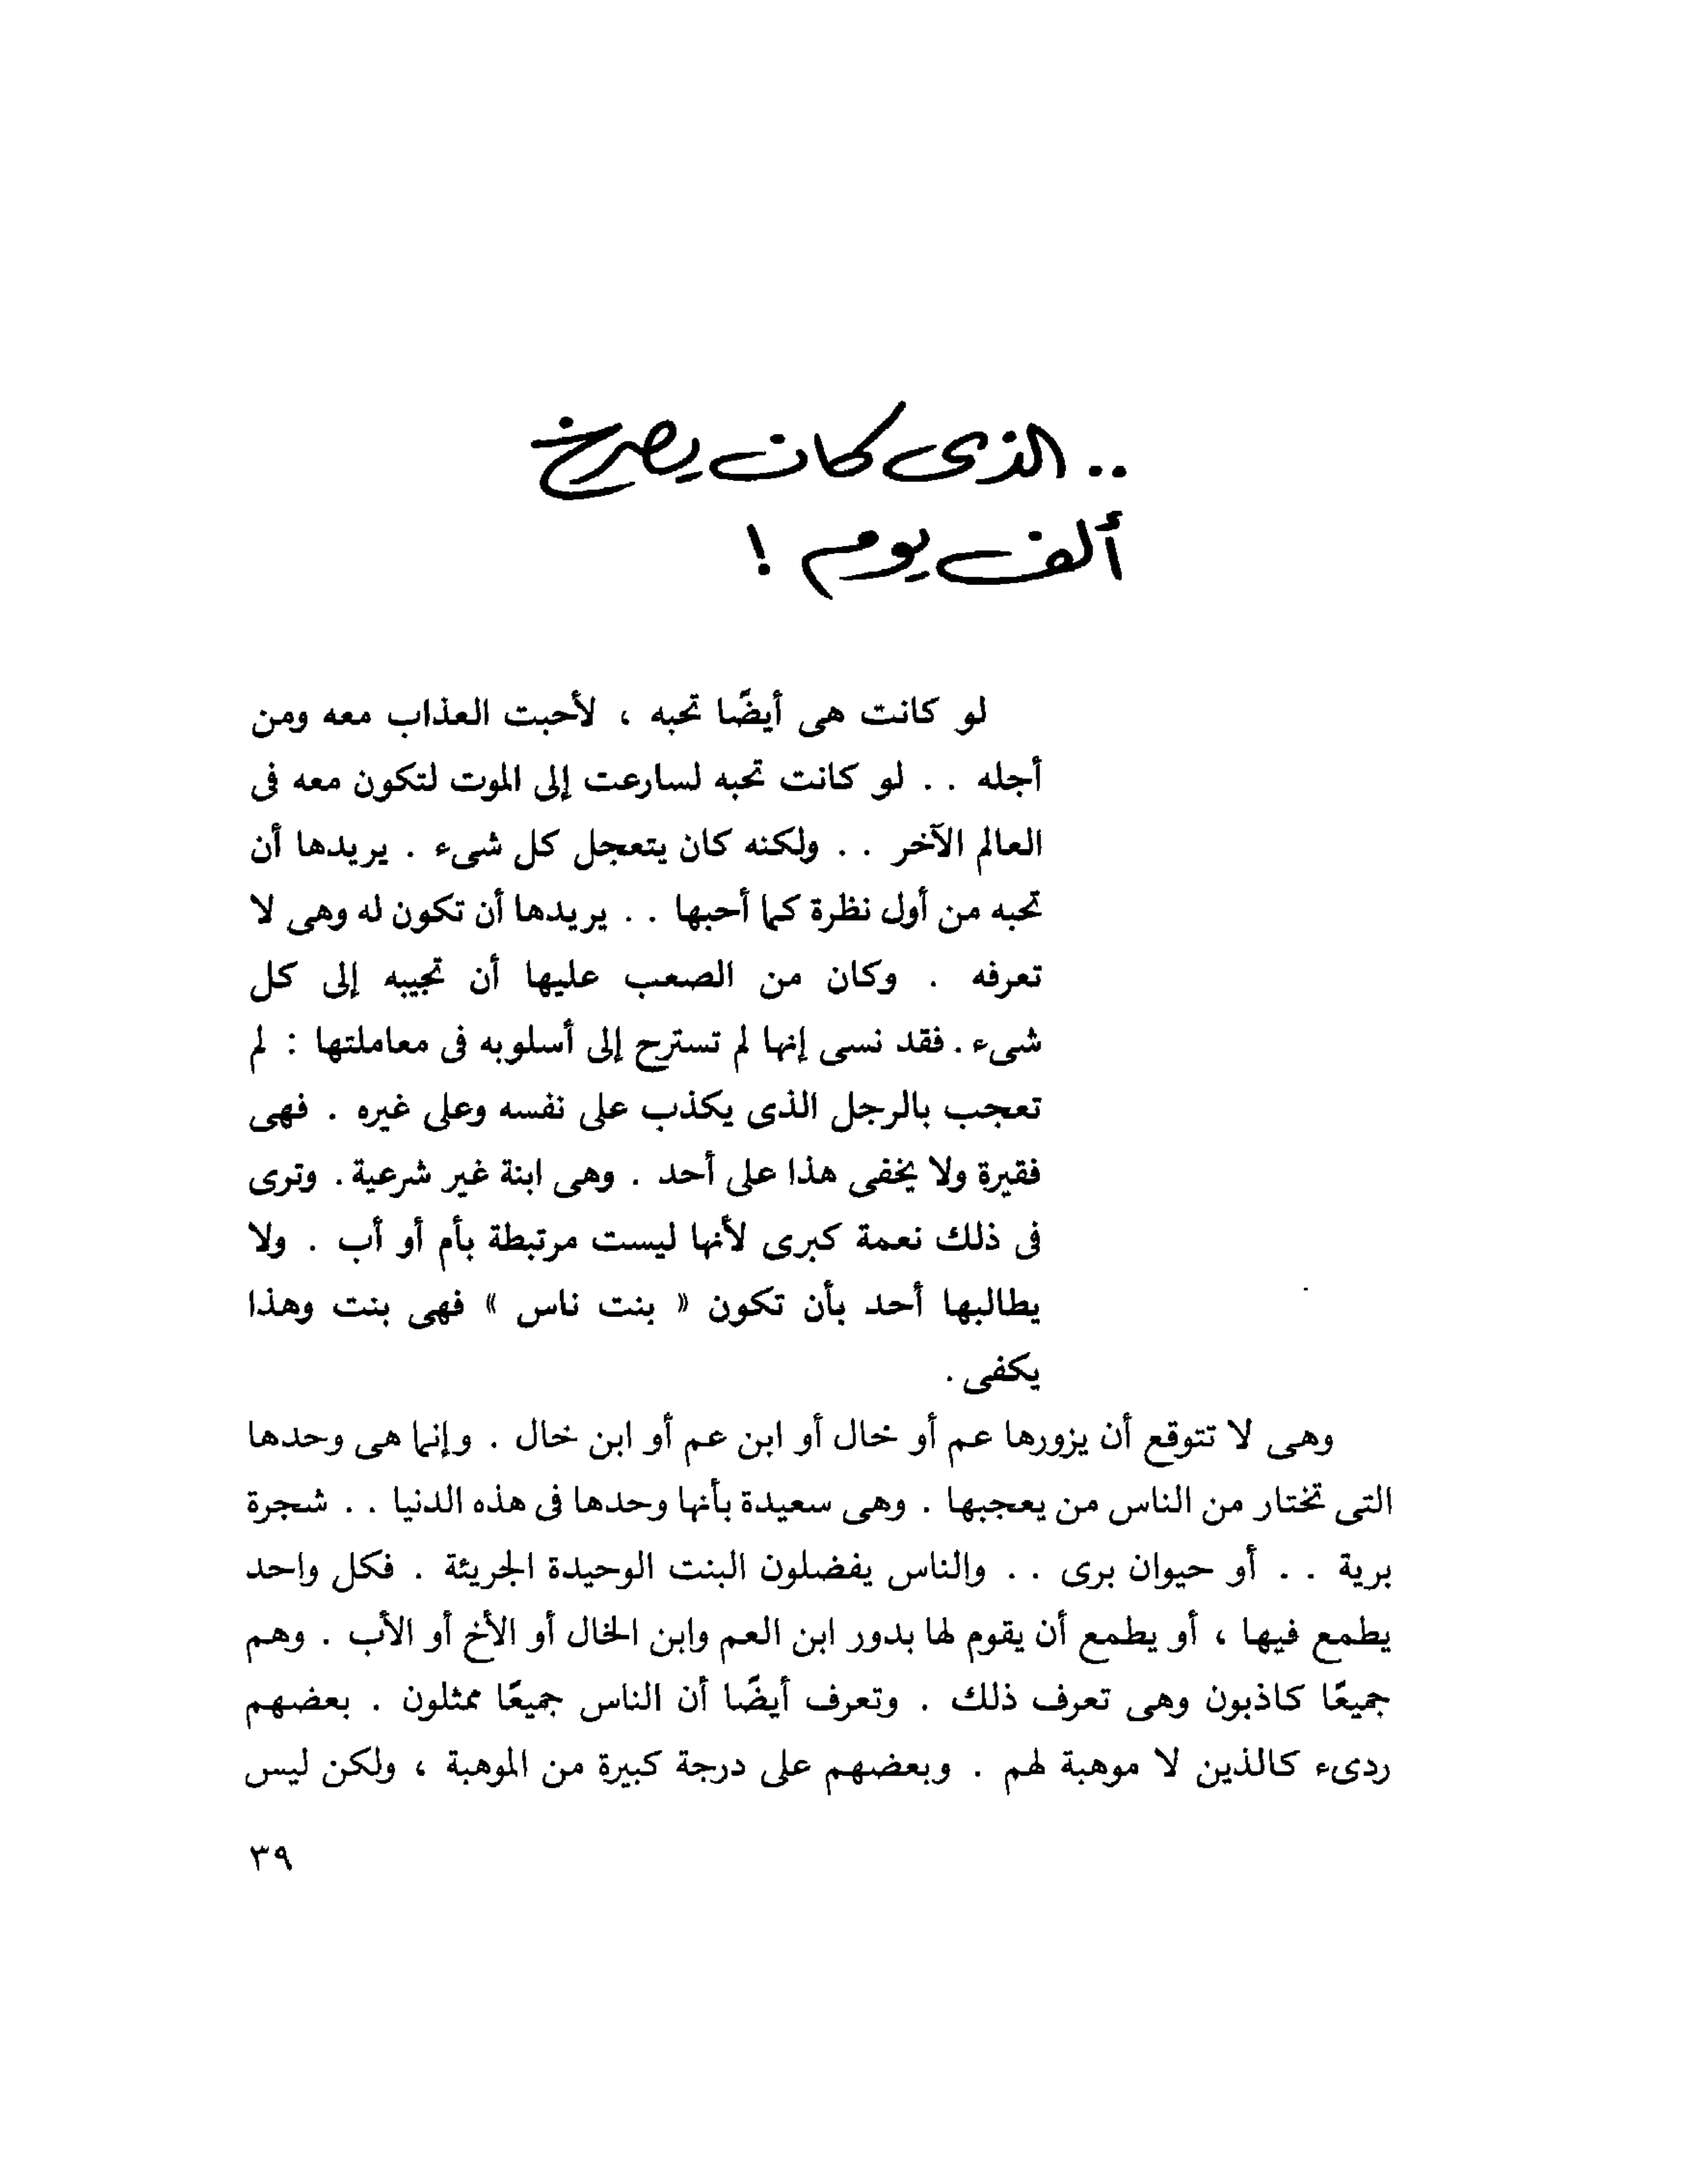 .. الذى كان يصرخ
ألف يوم !
لو كانت هى أيضًا تحبه ، لأحبت العذاب معه ومن
أجله . . لو كانت تحبه لسارعت إلى الموت لتكون معه فى
العالم الآخر . . ولكنه كان يتعجل كل شىء . يريدها أن
تحبه من أول نظرة كما أحبها . . يريدها أن تكون له وهى لا
تعرفه . وكان من الصعب عليها أن تجيبه إلى كل
شىء . فقد نسى إنها لم تسترح إلى أسلوبه فى معاملتها : لم
تعجب بالرجل الذى يكذب على نفسه وعلى غيره . فهى
فقيرة ولا يخفى هذا على أحد . وهى ابنة غير شرعية . وترى
فى ذلك نعمة كبرى لأنها ليست مرتبطة بأم أو أب . ولا
يطالبها أحد بأن تكون « بنت ناس » فهى بنت وهذا
يكفى .
وهى لا تتوقع أن يزورها عم أو خال أو ابن عم أو ابن خال . وإنما هى وحدها
التى تختار من الناس من يعجبها . وهى سعيدة بأنها وحدها فى هذه الدنيا . . شجرة
برية . . أو حيوان برى . . والناس يفضلون البنت الوحيدة الجريئة . فكل واحد
يطمع فيها ، أو يطمع أن يقوم لها بدور ابن العم وابن الخال أو الأخ أو الأب . وهم
جميعًا كاذبون وهى تعرف ذلك . وتعرف أيضًا أن الناس جميعًا ممثلون . بعضهم
ردىء كالذين لا موهبة لهم . وبعضهم على درجة كبيرة من الموهبة ، ولكن ليس
٣٩